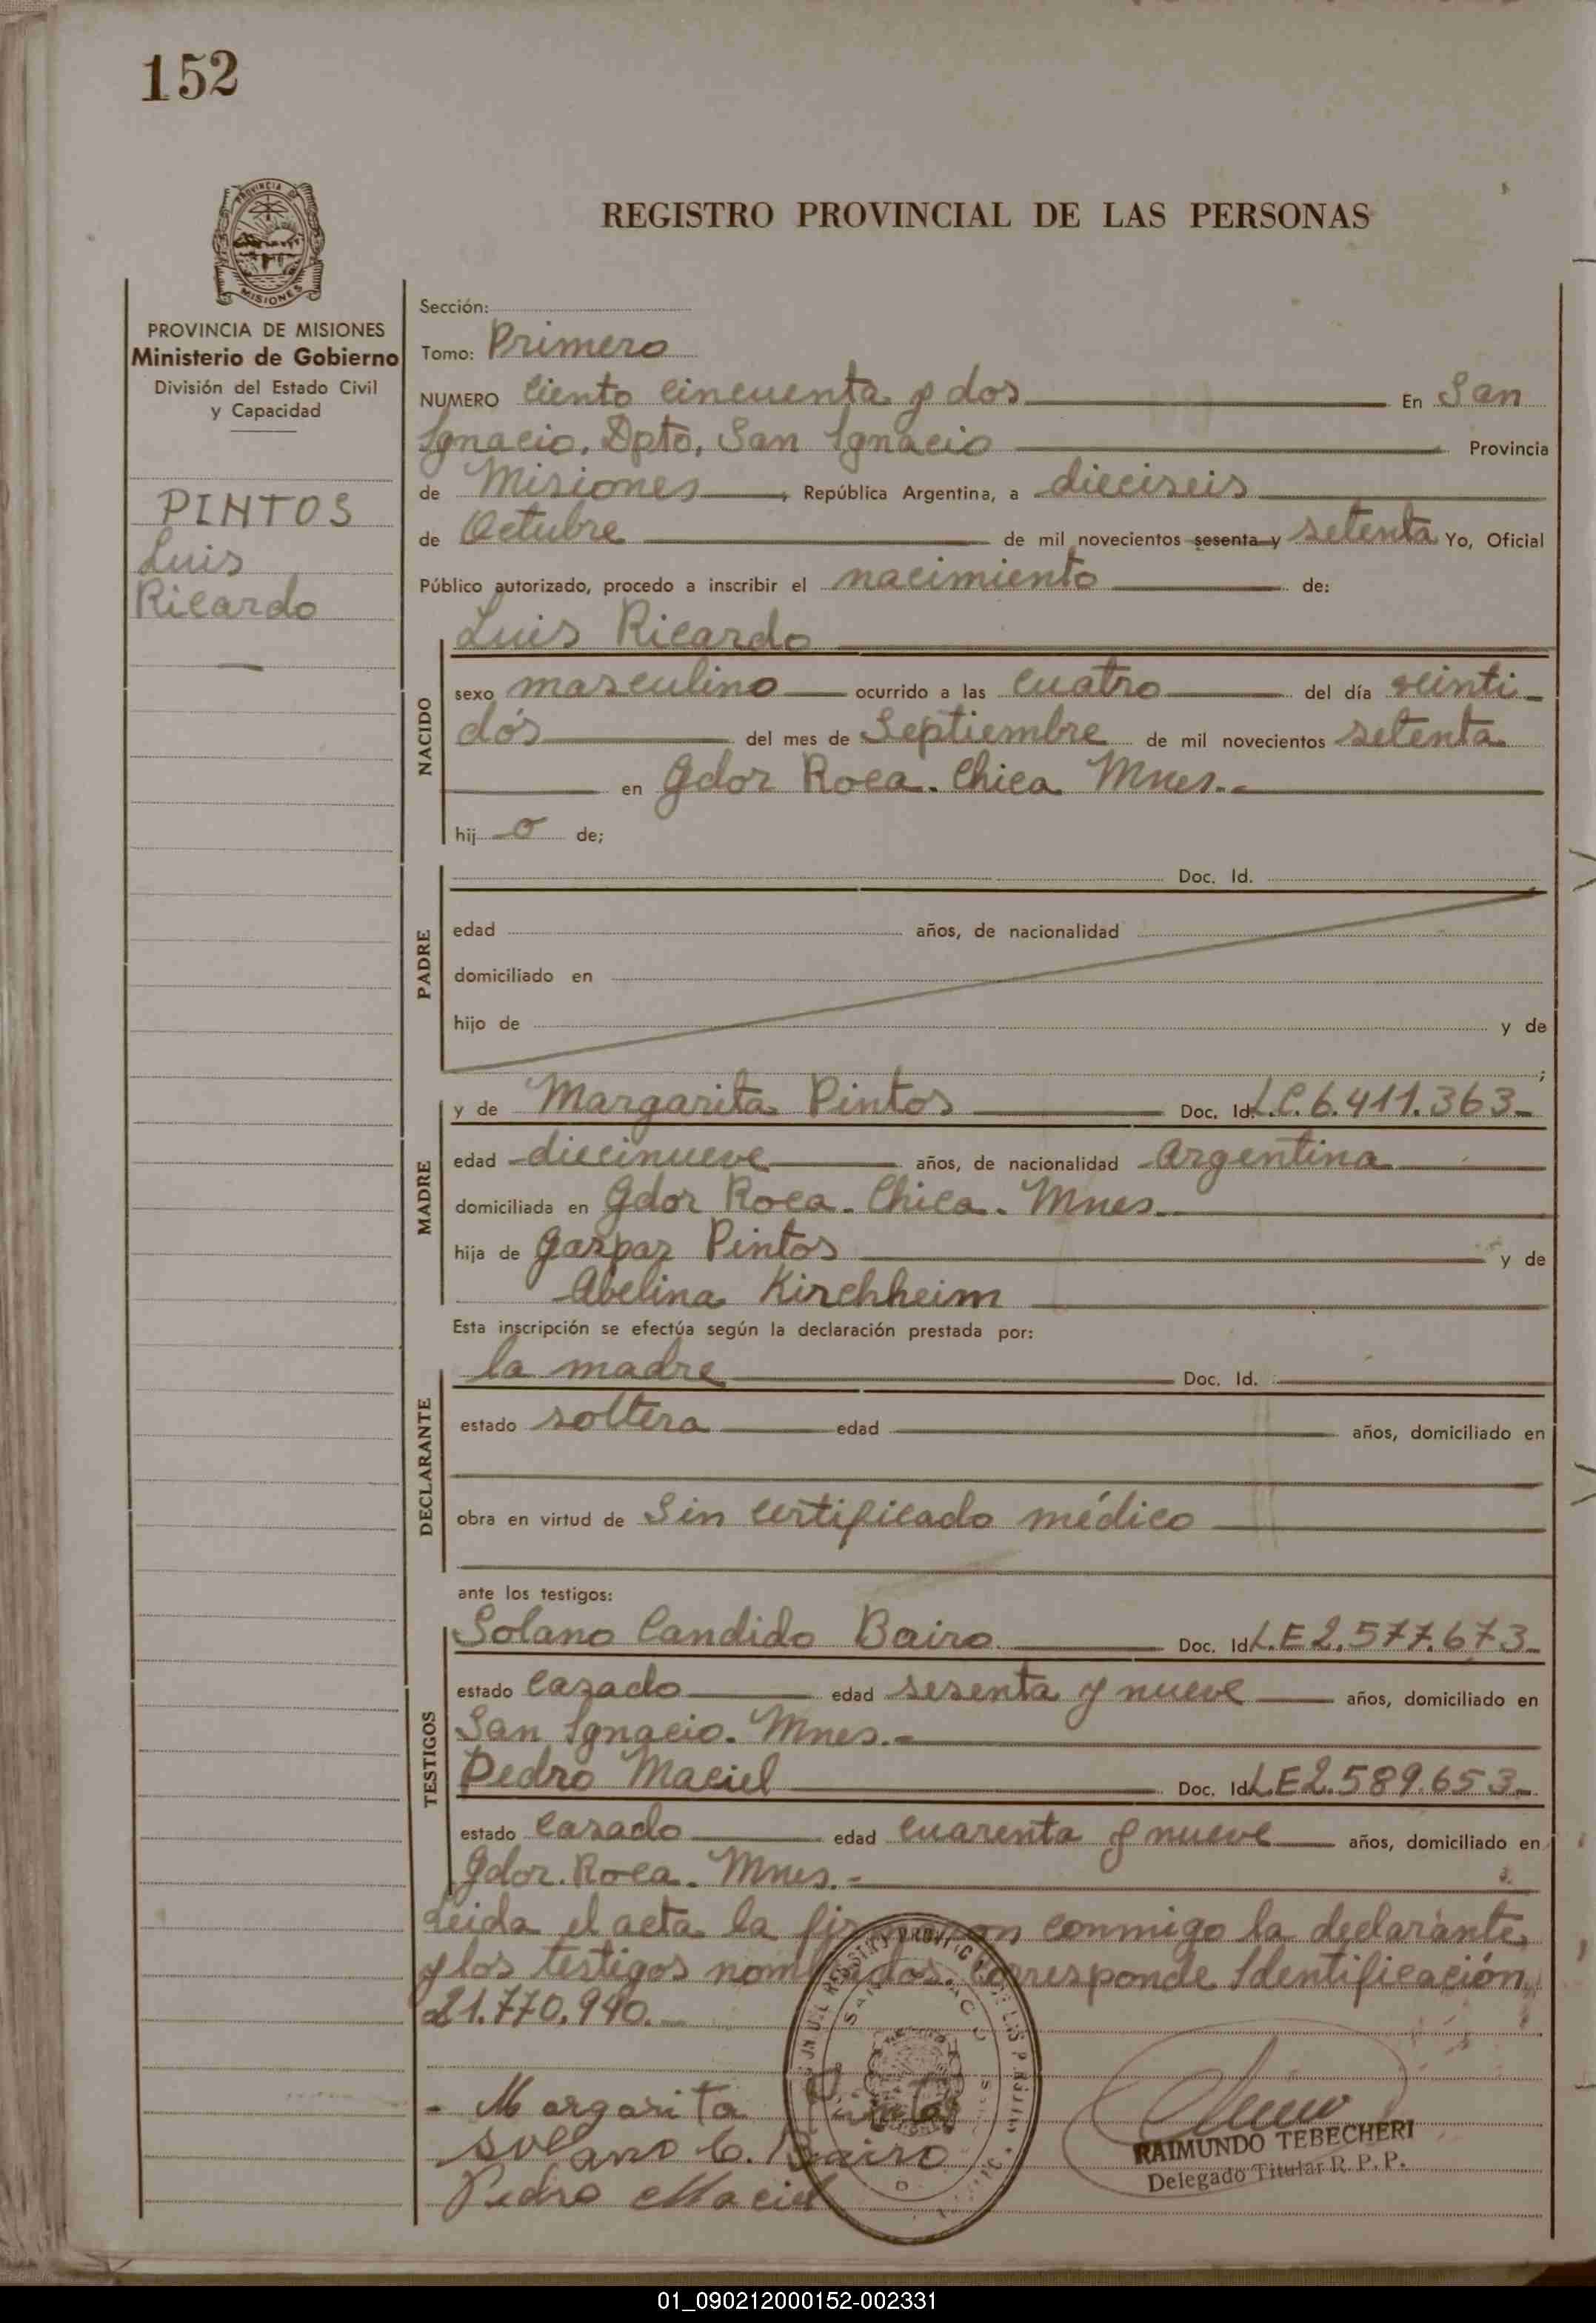 152
PROVINCIA DE
MISIONES
REGISTRO PROVINCIAL DE LAS PERSONAS
PROVINCIA DE MISIONES
Ministerio de Gobierno
División del Estado Civil
y Capacidad
PINTOS
Luis
Ricardo
Sección:
Tomo: Primero
NUMERO Ciento Cincuenta y dos En San
Ignacio. Dpto. San Ignacio Provincia
de Misiones, República Argentina, a dieciseis
de Octubre de mil novecientos sesenta y setenta Yo, Oficial
Público autorizado, procedo a inscribir el nacimiento de:
Luis Ricardo
NACIDO
sexo masculino ocurrido a las cuatro del día veinti-
dós del mes de Septiembre de mil novecientos setenta
en Gdor Roca. Chica Mnes.-
hij o de;
PADRE
Doc. Id.
edad años, de nacionalidad
domiciliado en
hijo de y de
;
MADRE
y de Margarita Pintos Doc. Id. L.C. 6.411.363-
edad diecinueve años, de nacionalidad Argentina
domiciliada en Gdor Roca. Chica. Mnes.
hija de Gaspar Pintos y de
Abelina Kirchheim
Esta inscripción se efectúa según la declaración prestada por:
DECLARANTE
la madre Doc. Id.
estado soltera edad años, domiciliado en
obra en virtud de Sin certificado médico
ante los testigos:
TESTIGOS
Solano Candido Bairo Doc. Id. L.E 2.577.673-
estado Casado edad sesenta y nueve años, domiciliado en
San Ignacio. Mnes.-
Pedro Maciel Doc. Id. L.E 2.589.653-
estado Casado edad cuarenta y nueve años, domiciliado en
Gdor. Roca. Mnes.-
Leida el acta la firmaron conmigo la declarante
y los testigos nombrados. Corresponde Identificación
21.770.940.-
- Margarita Pintos
Solano C. Bairo
Pedro Maciel
RAIMUNDO TEBECHERI
Delegado Titular R. P. P.
01_090212000152-002331